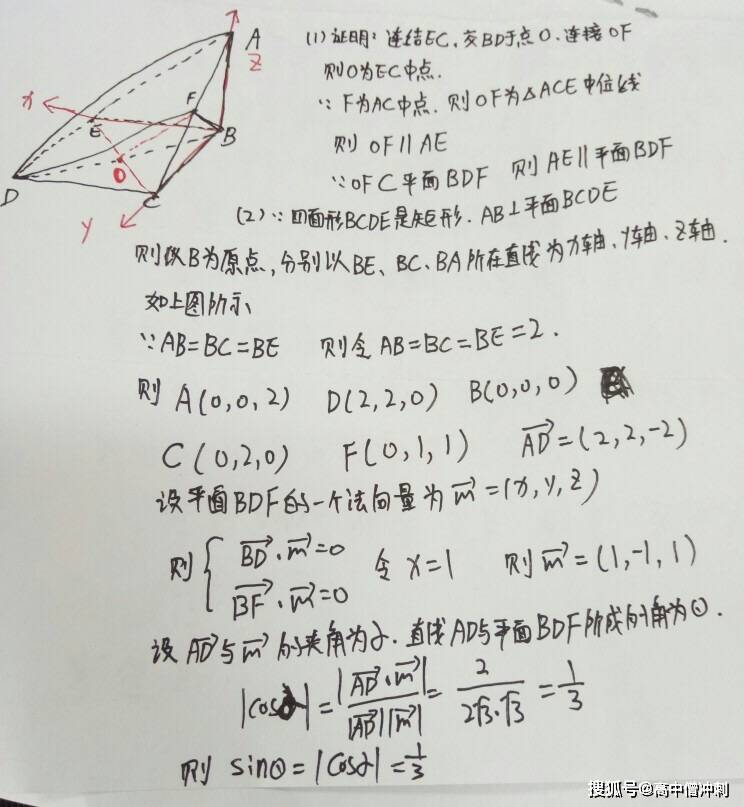 A
Z
x
E
F
B
O
D
C
y
(1) 证明: 连结EC, 交BD于点O. 连接OF
则O为EC中点.
∵ F为AC中点. 则OF为△ACE中位线
则 OF∥AE
∵OF⊂平面BDF 则AE∥平面BDF
(2) ∵四面形BCDE是矩形. AB⊥平面BCDE
则以B为原点, 分别以BE、BC、BA所在直线为x轴、y轴、z轴.
如上图所示
∵AB=BC=BE 则令 AB=BC=BE=2.
则 A(0,0,2) D(2,2,0) B(0,0,0)
C(0,2,0) F(0,1,1) $\overrightarrow{AD}$=(2,2,-2)
设平面BDF的一个法向量为 $\overrightarrow{m}$=(x,y,z)
则 { $\overrightarrow{BD}$·$\overrightarrow{m}$=0 令 x=1 则 $\overrightarrow{m}$=(1,-1,1)
$\overrightarrow{BF}$·$\overrightarrow{m}$=0
设 $\overrightarrow{AD}$与$\overrightarrow{m}$的夹角为α. 直线AD与平面BDF所成的角为θ.
|cosα|=$\frac{|\overrightarrow{AD}·\overrightarrow{m}|}{|\overrightarrow{AD}||\overrightarrow{m}|}$=$\frac{2}{2\sqrt{3}·\sqrt{3}}$=$\frac{1}{3}$
则 sinθ=|cosα|=$\frac{1}{3}$
搜狐号@高中僧冲刺